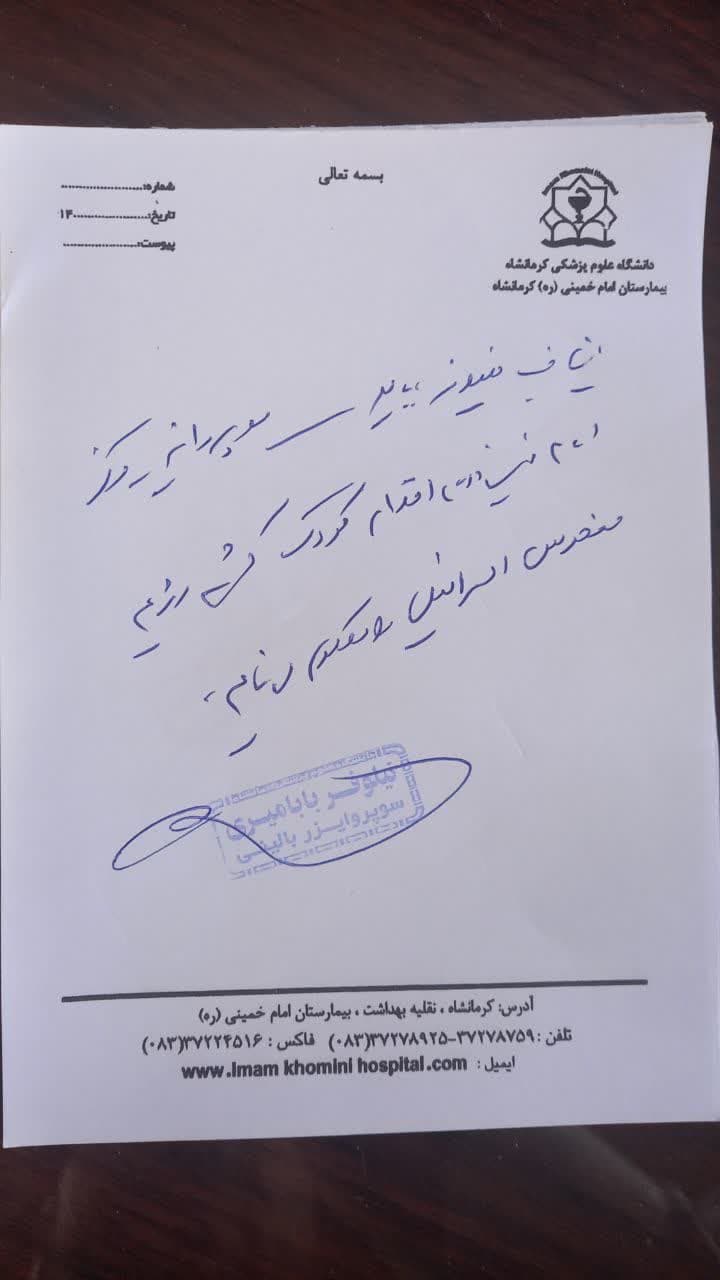 بسمه تعالی
شماره:........................
تاریخ:......................۱۴
پیوست:......................
دانشگاه علوم پزشکی کرمانشاه
بیمارستان امام خمینی (ره) کرمانشاه
اینجانب نیلوفر بابامیری سوپروایزر مرکز
امام خمینی (ره) اقدام کودک کشی رژیم
منحوس اسرائیل را محکوم می نمایم.
نیلوفر بابامیری
سوپروایزر بالینی
آدرس: کرمانشاه ، نقلیه بهداشت ، بیمارستان امام خمینی (ره)
تلفن: ۳۷۲۷۸۷۵۹-۳۷۲۷۸۹۲۵(۰۸۳) فاکس : ۳۷۲۲۴۵۱۶(۰۸۳)
ایمیل : www.Imam khomini hospital.com